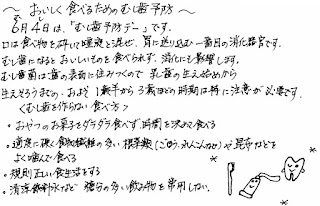 ～ おいしく食べるためのむし歯予防 ～
6月4日は、「むし歯予防デー」です。
口は食べ物を砕いて唾液と混ぜ、胃に送り込む一番目の消化器官です。
むし歯になるとおいしいものを食べられず、消化にも影響します。
むし歯菌は歯の表面に住みつくので 乳歯の生え始めから
生えそろうまでの、およそ1歳半から3歳ほどの時期は特に注意が必要です。
〈むし歯を作らない食べ方〉
・おやつのお菓子をダラダラ食べず、時間を決めて食べる
・適度に硬く食物繊維の多い根菜類(ごぼう、れんこんなど)や昆布などを
よく噛んで食べる
・規則正しい食生活をする
・清涼飲料水など 糖分の多い飲み物を常用しない。